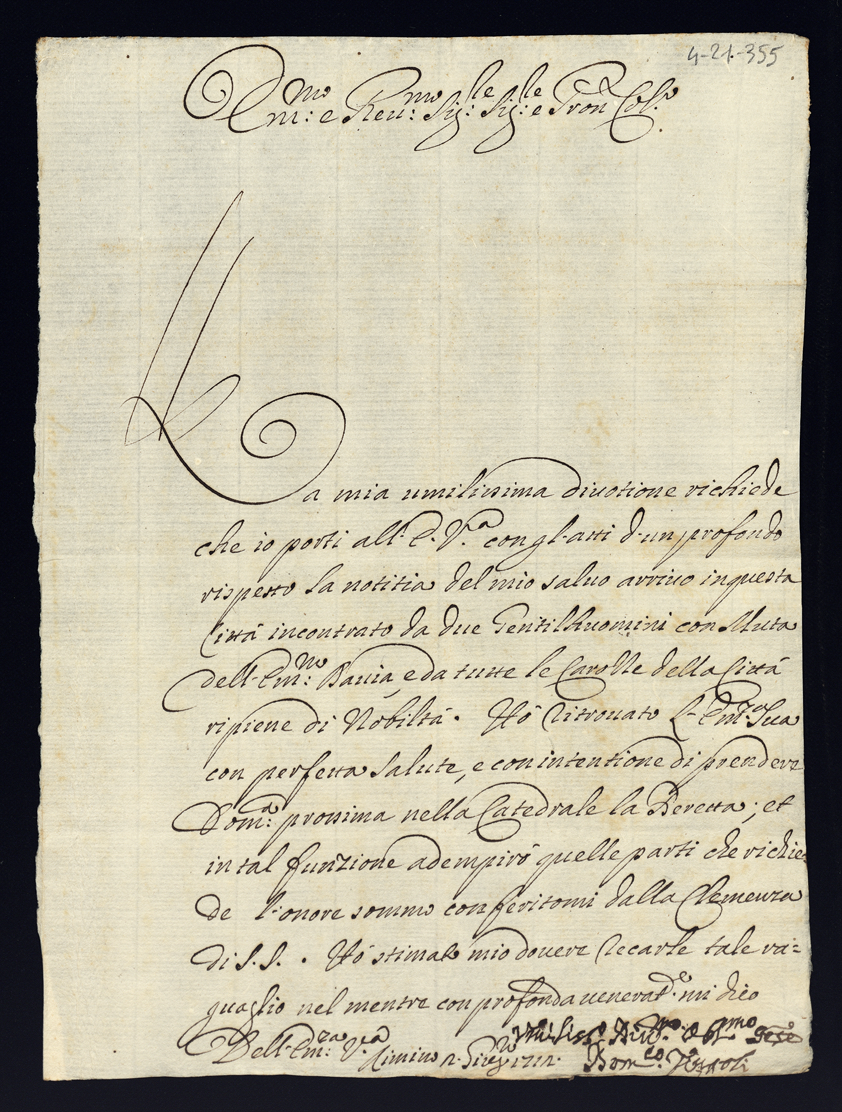 4-21-355
Em:mo e Reu:mo Sig:le Sig:le e Pron Col:o
La mia umilissima diuotione richiede
che io porti all'E. V.a con gl'atti d'un profondo
rispetto la notitia del mio saluo arriuo in questa
Città incontrato da due Gentilhuomini con Muta
dell'Em:mo e da tutte le Carozze della Città
ripiene di Nobiltà. Hò ritrouato L'Em:za Sua
con perfetta salute, e con intentione di prendere
Dom:a prossima nella Catedrale la Beretta; et
in tal funzione adempirò quelle parti che richie
de l'onore sommo conferitomi dalla Clemenza
di S. S. . Hò stimato mio douere recarle tale ra=
guaglio nel mentre con profonda uenerat.e mi dico
Dell'Em:za V.a Rimino 2. 1712. Vmiliss.o
Dom.co